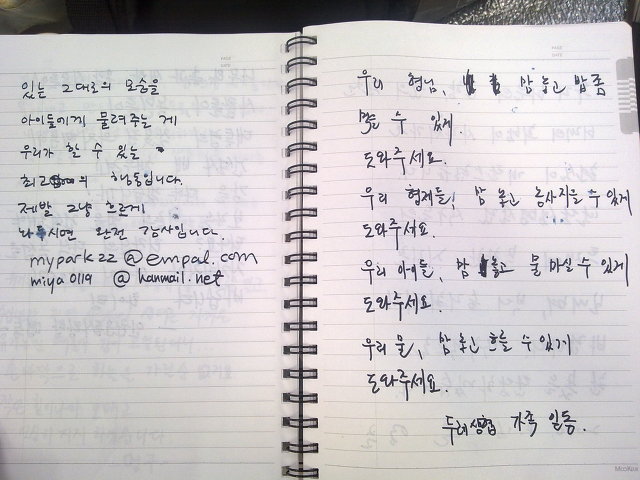 있는 그대로의 모습을
아이들에게 물려주는 게
우리가 할 수 있는
최고의 행동입니다.
제발 그냥 흐르게
놔두시면 완전 감사입니다.
mypark22@empal.com
miya0119 @hanmail.net
PAGE
DATE
우리 형님, 맘 놓고 밥 좀
먹을 수 있게
도와주세요.
우리 형제들, 맘 놓고 농사지을 수 있게
도와주세요.
우리 아이들, 맘 놓고 물 마실 수 있게
도와주세요.
우리 물, 맘 놓고 흐를 수 있게
도와주세요.
두레생협 가족 일동.